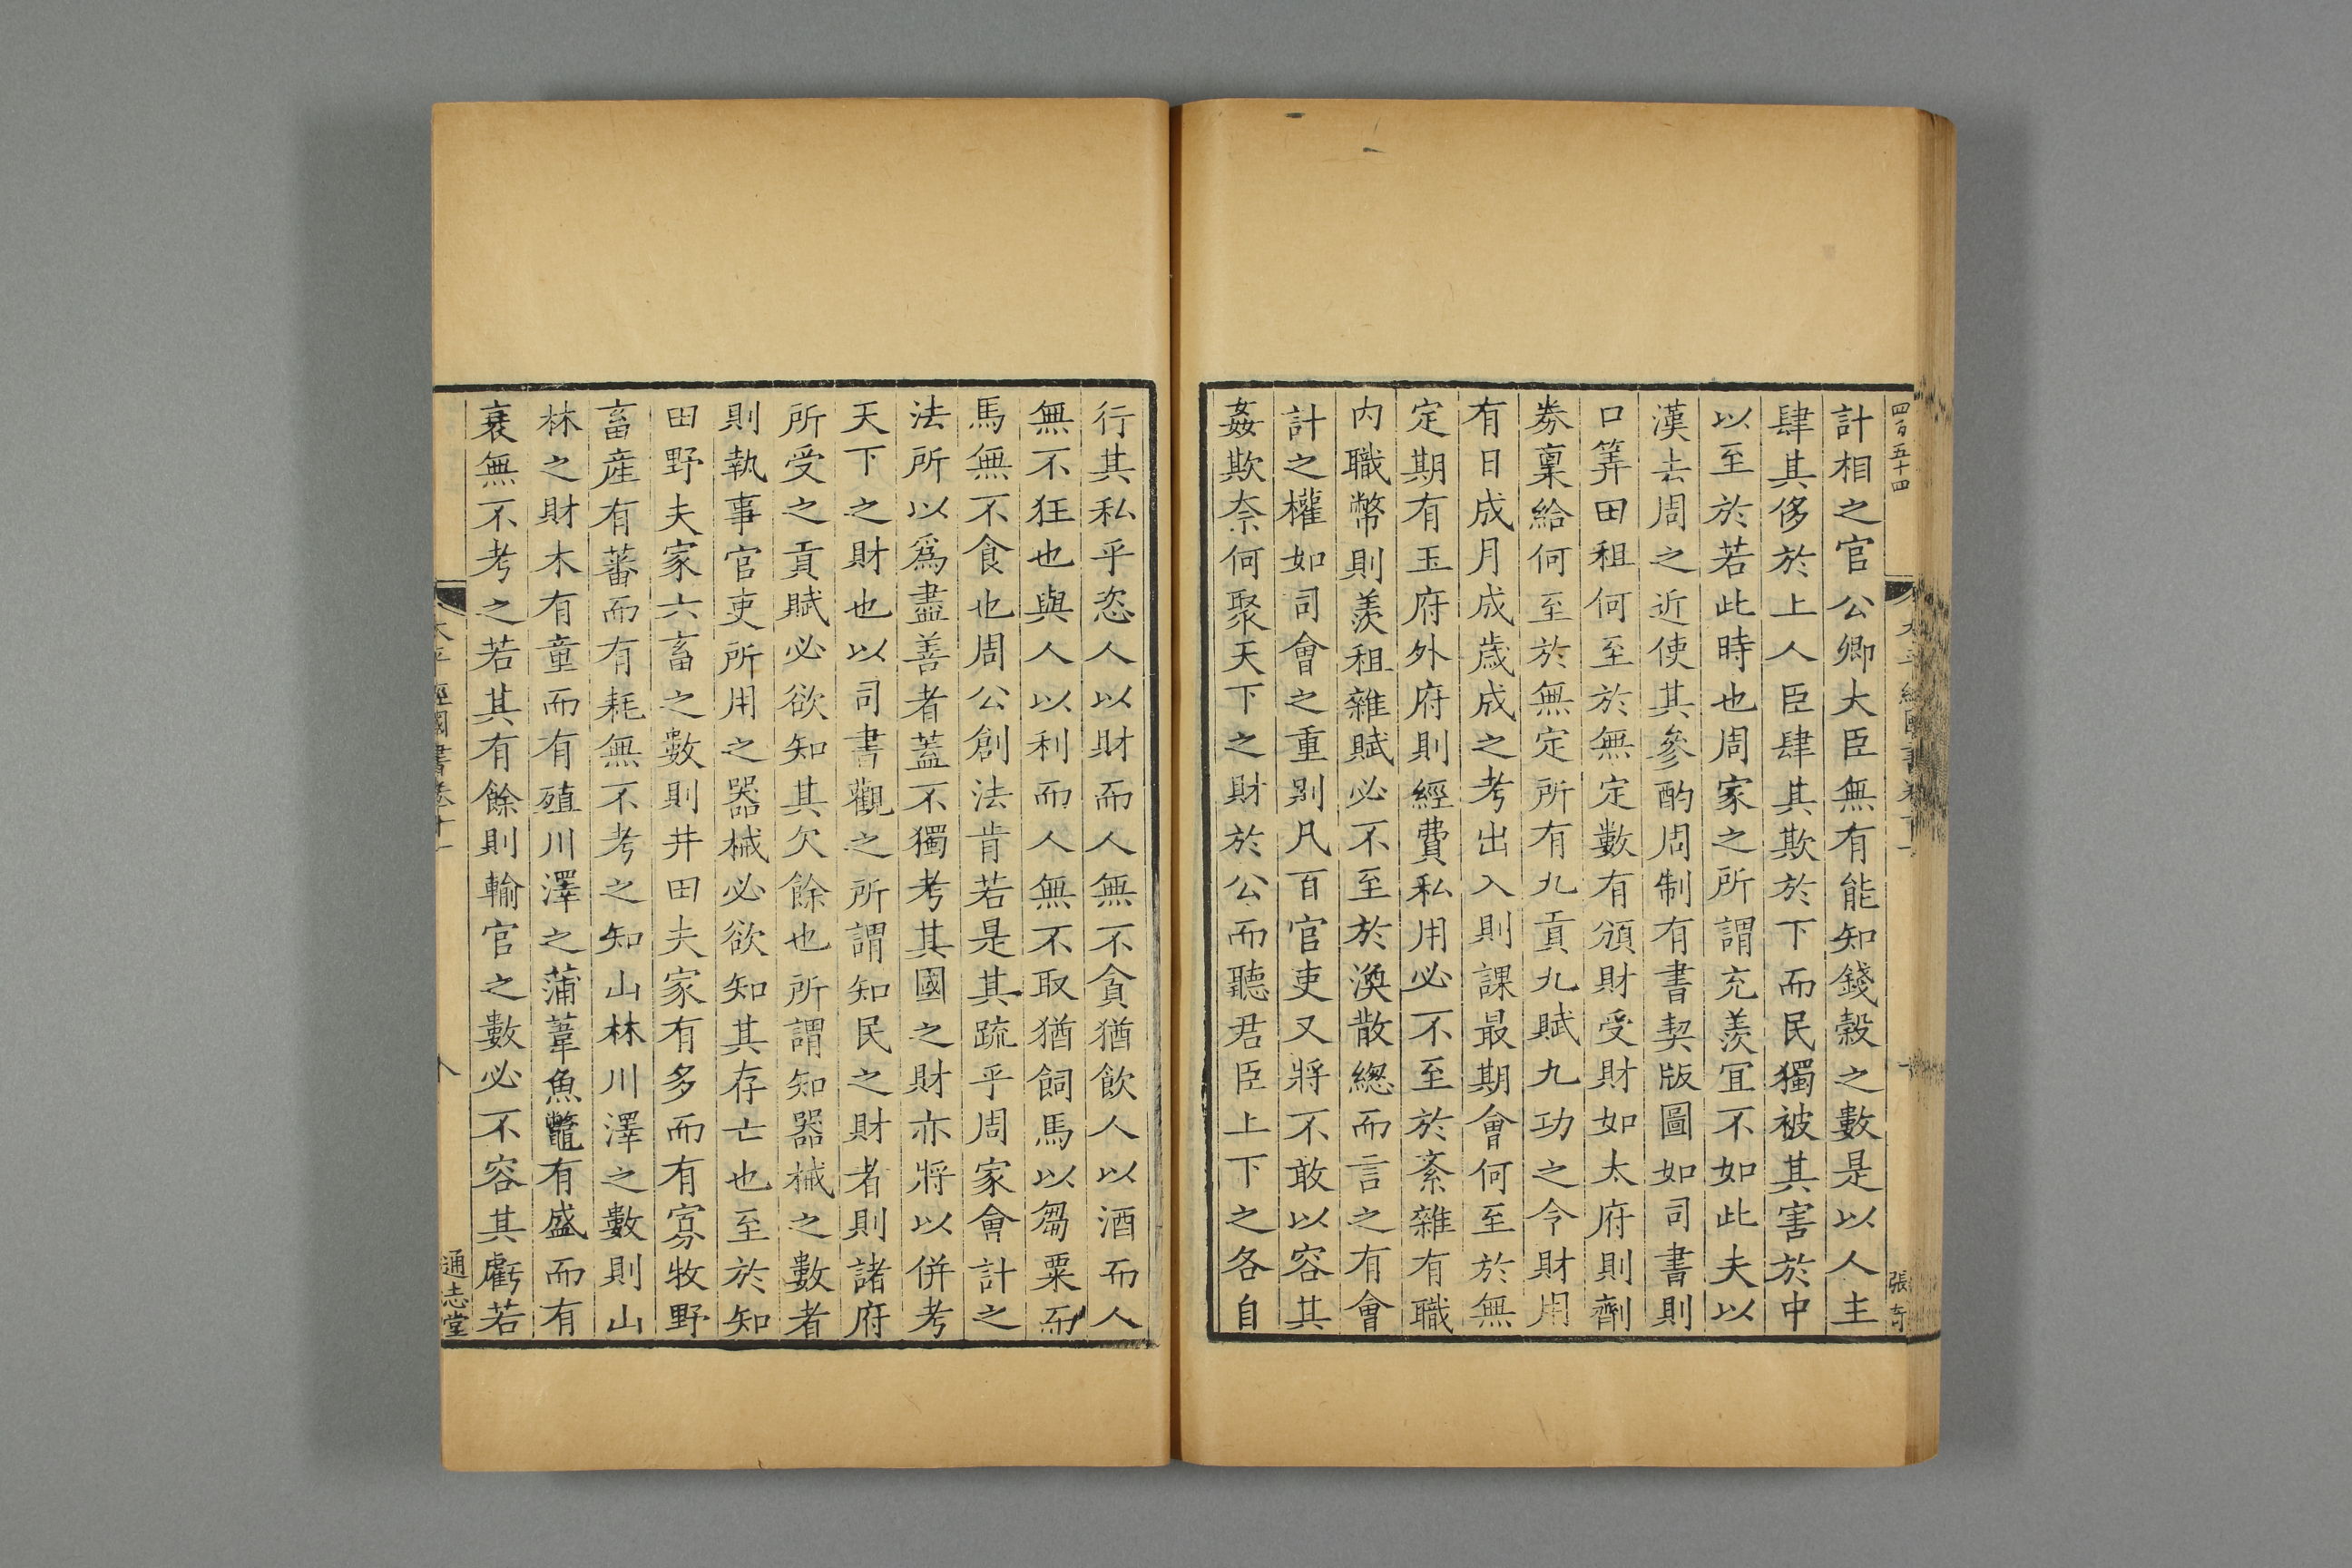 四百五十四
張奇
計相之官公卿大臣無有能知錢穀之數是以人主
肆其侈於上人臣肆其欺於下而民獨被其害於中
以至於若此時也周家之所謂充羨宜不如此夫以
漢去周之近使其參酌周制有書契版圖如司書則
口筭田租何至於無定數有頒財受財如太府則劑
券稟給何至於無定所有九貢九賦九功之令財用
有日成月成歲成之考出入則課最期會何至於無
定期有玉府外府則經費私用必不至於紊雜有職
内職幣則羨租雜賦必不至於渙散緫而言之有會
計之權如司會之重别凡百官吏又將不敢以容其
姦欺柰何聚天下之財於公而聽君臣上下之各自
行其私乎恣人以財而人無不貪猶飲人以酒而人
無不狂也與人以利而人無不取猶飼馬以芻粟而
馬無不食也周公創法肯若是其疏乎周家會計之
法所以爲盡善者蓋不獨考其國之財亦將以併考
天下之財也以司書觀之所謂知民之財者則諸府
所受之貢賦必欲知其欠餘也所謂知器械之數者
則執事官吏所用之器械必欲知其存亡也至於知
田野夫家六畜之數則井田夫家有多而有寡牧野
畜産有蕃而有耗無不考之知山林川澤之數則山
林之財木有童而有殖川澤之蒲葦魚鼈有盛而有
衰無不考之若其有餘則輸官之數必不容其虧若
經國書卷十一
八
通志堂